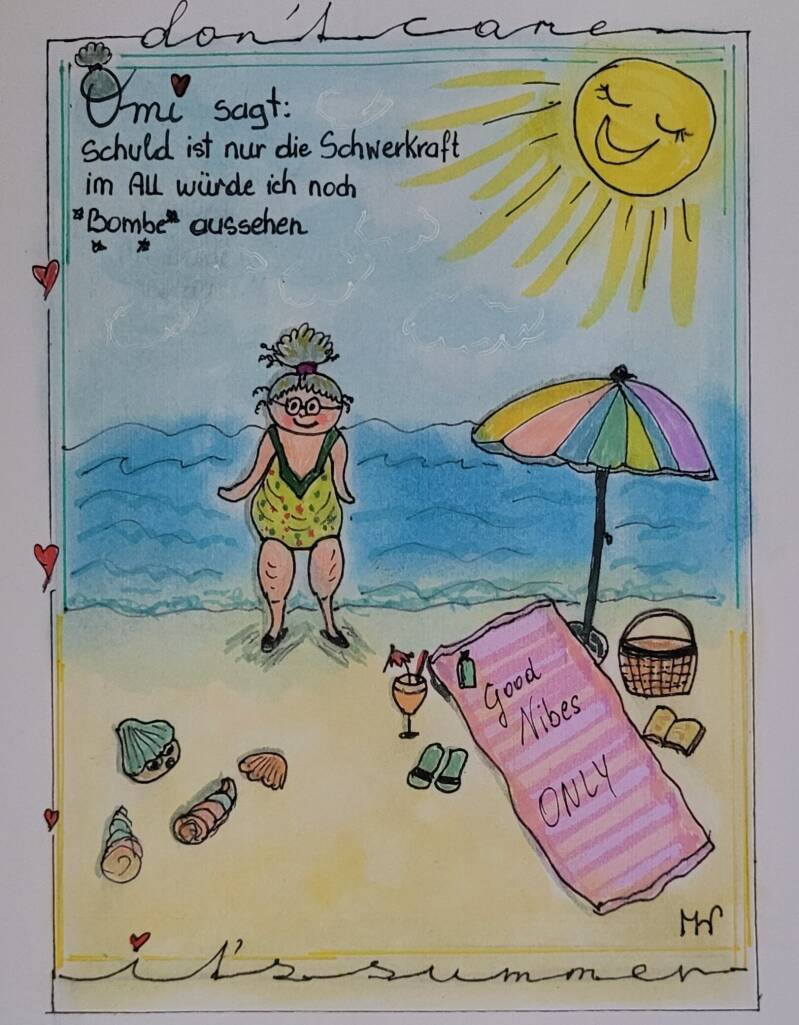 don't care
Omi sagt:
schuld ist nur die Schwerkraft
im All würde ich noch
*Bombe* aussehen
Good
Vibes
ONLY
MW
it's summer